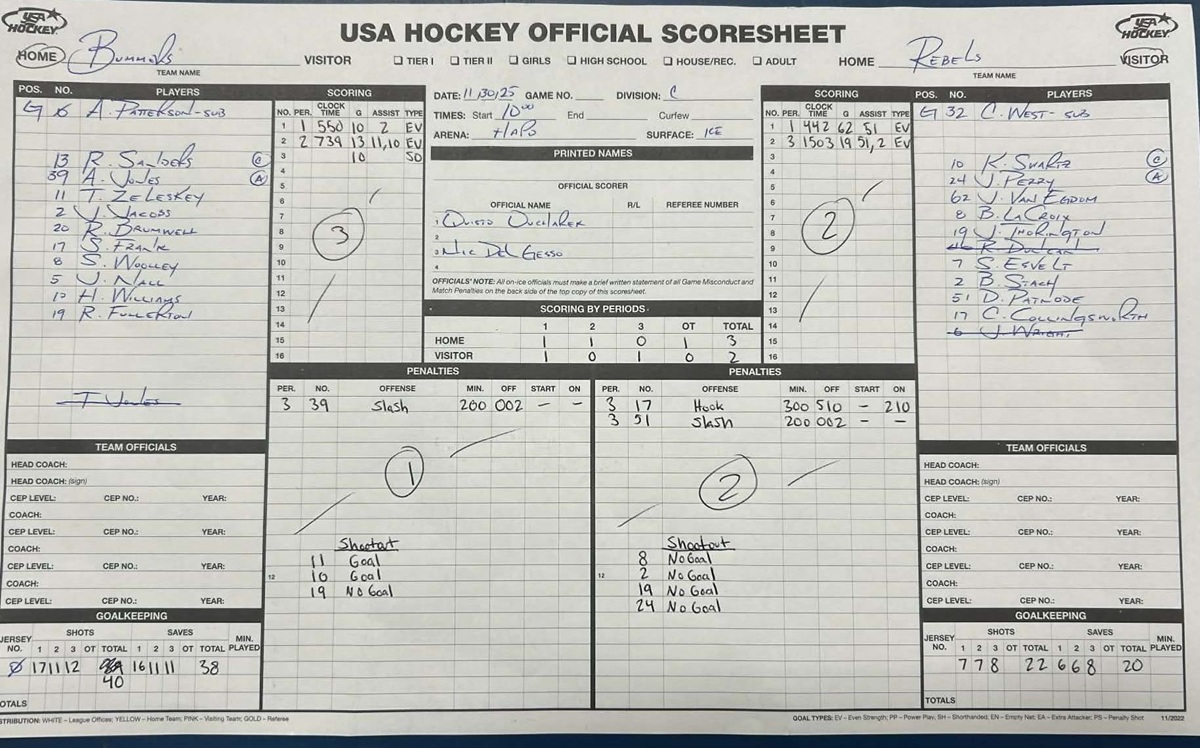 USA HOCKEY
USA HOCKEY OFFICIAL SCORESHEET
USA HOCKEY
HOME Bummers VISITOR ☐ TIER I ☐ TIER II ☐ GIRLS ☐ HIGH SCHOOL ☐ HOUSE/REC. ☐ ADULT HOME Rebels VISITOR
TEAM NAME TEAM NAME
POS. NO. PLAYERS
G A. Patterson-sub
13 R. Sanders C
39 A. Jones A
11 T. Zeleskey
2 J. Jacoss
20 R. Brumwell
17 S. Frank
8 S. Woolley
5 J. Nall
10 H. Williams
19 R. Fullerton
T Jones
SCORING
NO. PER. CLOCK TIME G ASSIST TYPE
1 1 550 10 2 EV
2 2 739 13 11,10 EV
3 10 SO
4
5
6
7
8
9
10
11
12
13
14
15
16
3
DATE: 11/30/25 GAME NO. DIVISION: C
TIMES: Start 10:00 End Curfew
ARENA: HAPO SURFACE: ICE
PRINTED NAMES
OFFICIAL SCORER
OFFICIAL NAME R/L REFEREE NUMBER
1
2
3 Nic Del Gesso
4
OFFICIALS' NOTE: All on-ice officials must make a brief written statement of all Game Misconduct and
Match Penalties on the back side of the top copy of this scoresheet.
SCORING BY PERIODS
1 2 3 OT TOTAL
HOME 1 1 0 1 3
VISITOR 1 0 1 0 2
SCORING
NO. PER. CLOCK TIME G ASSIST TYPE
1 1 442 62 51 EV
2 3 1503 19 51,2 EV
3
4
5
6
7
8
9
10
11
12
13
14
15
16
2
POS. NO. PLAYERS
G 32 C. West-sub
10 K. Swartz C
24 J. Perry A
62 J. Van Egdom
8 B. LaCroix
19 J. Thorington
46 R. Duncan
7 S. Esvelt
2 B. Stach
51 D. Patnode
17 C. Collingsworth
6 J. Wright
PENALTIES
PER. NO. OFFENSE MIN. OFF START ON
3 39 Slash 200 002 – –
1
Shootout
11 Goal
12 10 Goal
19 No Goal
PENALTIES
PER. NO. OFFENSE MIN. OFF START ON
3 17 Hook 300 510 – 210
3 51 Slash 200 002 – –
2
Shootout
8 No Goal
12 2 No Goal
19 No Goal
24 No Goal
TEAM OFFICIALS
HEAD COACH:
HEAD COACH: (sign)
CEP LEVEL: CEP NO.: YEAR:
COACH:
CEP LEVEL: CEP NO.: YEAR:
COACH:
CEP LEVEL: CEP NO.: YEAR:
COACH:
CEP LEVEL: CEP NO.: YEAR:
GOALKEEPING
JERSEY NO. SHOTS SAVES MIN. PLAYED
1 2 3 OT TOTAL 1 2 3 OT TOTAL
Ø 17 11 12 40 16 11 11 38
OTALS
TEAM OFFICIALS
HEAD COACH:
HEAD COACH: (sign)
CEP LEVEL: CEP NO.: YEAR:
COACH:
CEP LEVEL: CEP NO.: YEAR:
COACH:
CEP LEVEL: CEP NO.: YEAR:
COACH:
CEP LEVEL: CEP NO.: YEAR:
GOALKEEPING
JERSEY NO. SHOTS SAVES MIN. PLAYED
1 2 3 OT TOTAL 1 2 3 OT TOTAL
7 7 8 22 6 6 8 20
TOTALS
STRIBUTION: WHITE – League Offices; YELLOW – Home Team; PINK – Visiting Team; GOLD – Referee
GOAL TYPES: EV – Even Strength; PP – Power Play, SH – Shorthanded, EN – Empty Net; EA – Extra Attacker, PS – Penalty Shot 11/2022